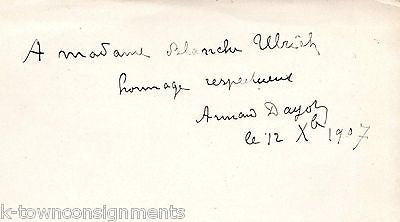 A madame Blanche Ulrich
hommage respectueux
Armand Dayot
le 12 Xb 1907
k-townconsignments